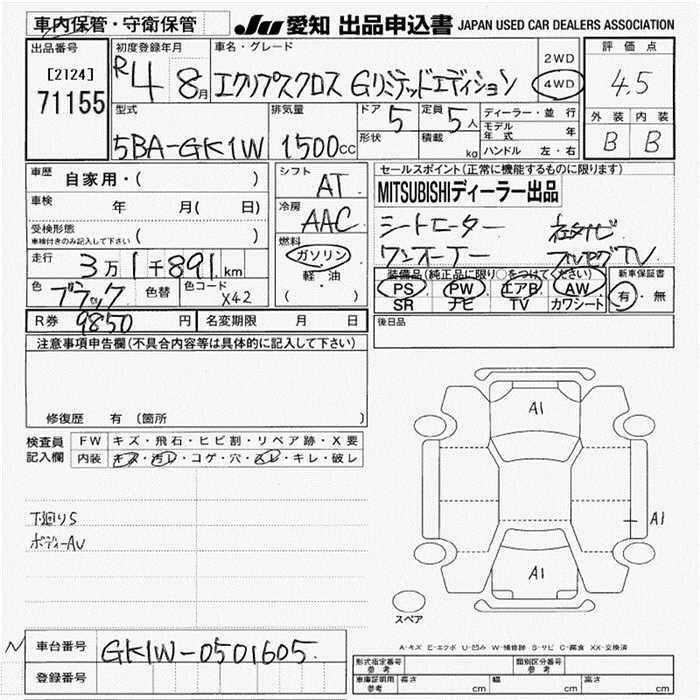 車内保管・守衛保管
JU 愛知 出品申込書 JAPAN USED CAR DEALERS ASSOCIATION
出品番号
[2124]
71155
初度登録年月
R4 8月
車名・グレード
エクリプスクロス Gリミテッドエディション
2WD
4WD
評価点
4.5
外装 内装
B B
型式
5BA-GK1W
排気量
1500cc
ドア 5
形状
定員 5人
積載 kg
ディーラー・並行
モデル年式 年
ハンドル 左・右
車歴 自家用・( )
車検 年 月( 日)
受検形態
車検付きのみ記入して下さい ( )
走行 3万1千891km
色 ブラック 色替 色コード X42
R券 9850 円 名変期限 月 日
シフト
AT
冷房
AAC
燃料
ガソリン
軽・油
( )
セールスポイント(正常に機能するものに限ります)
MITSUBISHIディーラー出品
シートヒーター 社外ナビ
ワンオーナー フルセグTV
装備品(純正品に限り○をつけてください)
PS PW エアB AW
SR ナビ TV カワシート
新車保証書
有・無
後日品
注意事項申告欄(不具合内容等は具体的に記入して下さい)
修復歴 有 (箇所 )
検査員記入欄
FW キズ・飛石・ヒビ割・リペア跡・X要
内装 キズ・汚レ・コゲ・穴・スレ・キレ・破レ
下廻りS
ボディーAU
A1
A1
A1
スペア
A-キズ E-エクボ U-凹み W-補修跡 S-サビ C-腐食 XX-交換済
N
車台番号 GK1W-0501605
登録番号
形式指定番号 参考
類別区分番号 参考
車庫証明用 参考
長さ cm 幅 cm 高さ cm